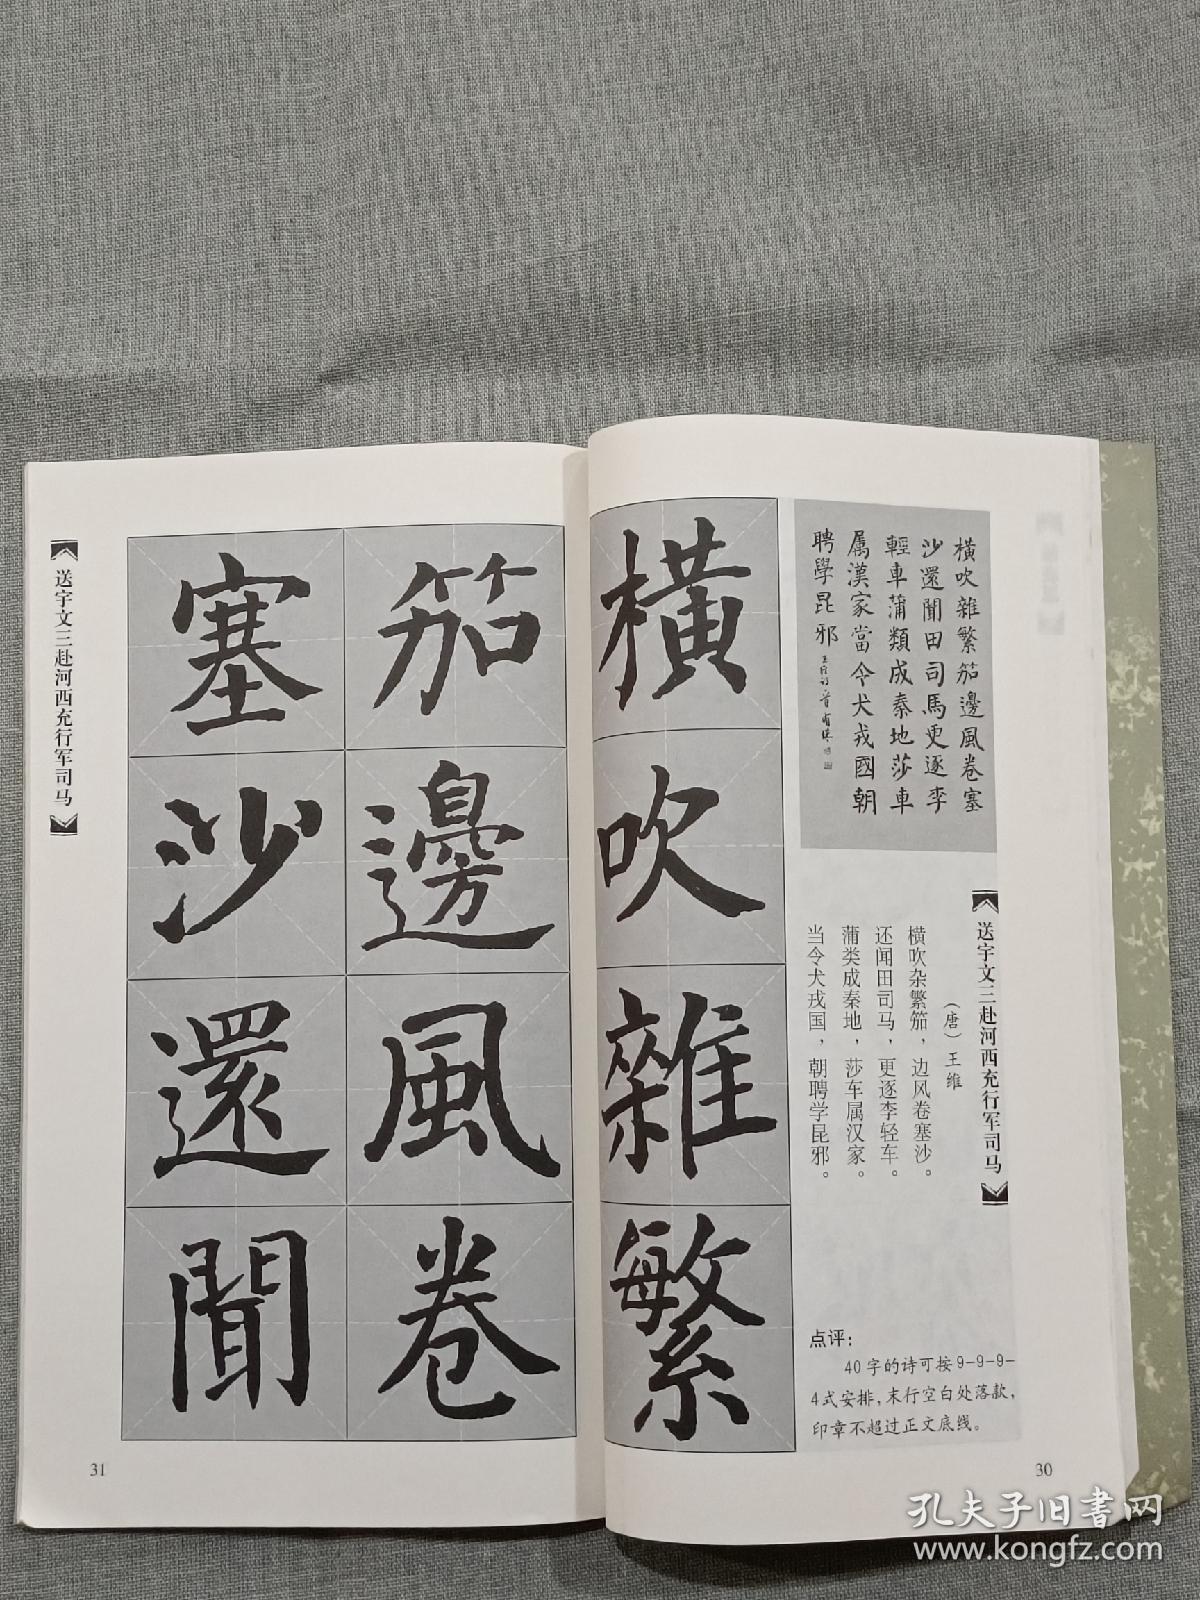 橫吹雜繁笳邊風卷塞
沙還聞田司馬更逐李
輕車蒲類成秦地莎車
屬漢家當令犬戎國朝
聘學昆邪
送宇文三赴河西充行军司马
（唐）王维
横吹杂繁笳，边风卷塞沙。
还闻田司马，更逐李轻车。
蒲类成秦地，莎车属汉家。
当令犬戎国，朝聘学昆邪。
点评：
40字的诗可按9-9-9-
4式安排，末行空白处落款，
印章不超过正文底线。
30
橫吹雜繁
笳邊風卷
塞沙還聞
送宇文三赴河西充行军司马
31
孔夫子旧书网
www.kongfz.com